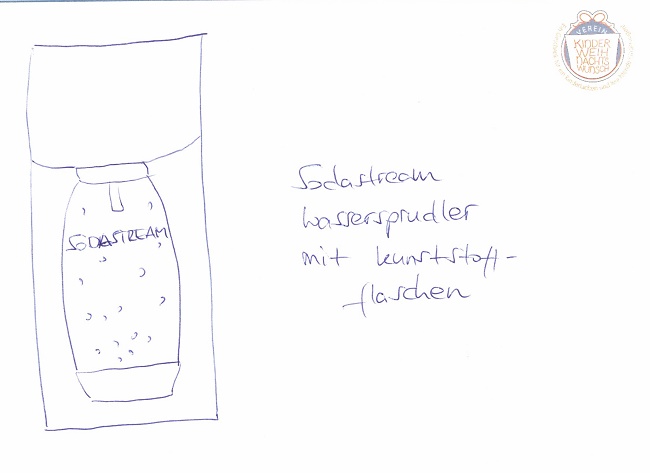 VEREIN
KINDER
WEIH
NACHTS
WUNSCH
SODASTREAM
Sodastream
Wassersprudler
mit Kunststoff-
flaschen